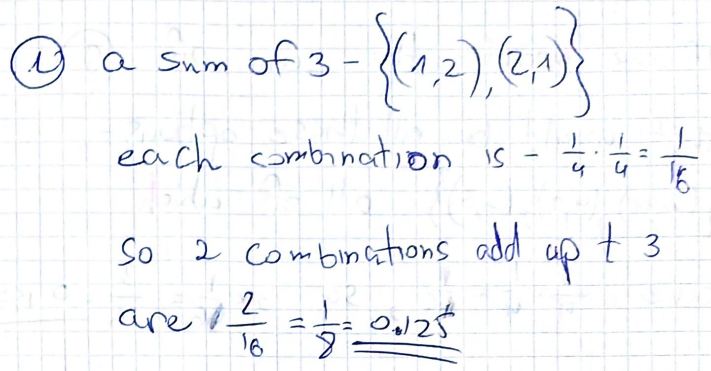 ① a sum of 3 - {(1,2),(2,1)}
each combination is - 1/4 · 1/4 = 1/16
so 2 combinations add up t 3
are 2/16 = 1/8 = 0.125